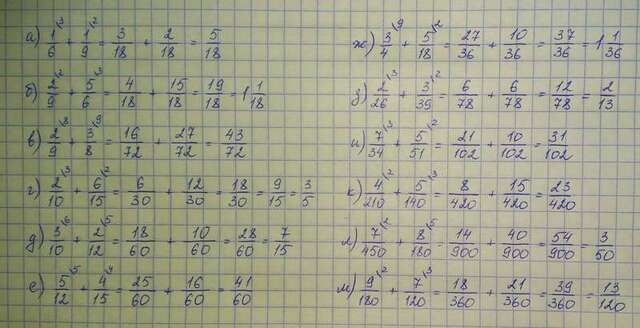 а) 1/6 \3 + 1/9 \2 = 3/18 + 2/18 = 5/18
б) 2/9 \2 + 5/6 \3 = 4/18 + 15/18 = 19/18 = 1 1/18
в) 2/9 \8 + 3/8 \9 = 16/72 + 27/72 = 43/72
г) 2/10 \3 + 6/15 \2 = 6/30 + 12/30 = 18/30 = 9/15 = 3/5
д) 3/10 \6 + 2/12 \5 = 18/60 + 10/60 = 28/60 = 7/15
е) 5/12 \5 + 4/15 \4 = 25/60 + 16/60 = 41/60
ж) 3/4 \9 + 5/18 \2 = 27/36 + 10/36 = 37/36 = 1 1/36
з) 2/26 \3 + 3/39 \2 = 6/78 + 6/78 = 12/78 = 2/13
и) 7/34 \3 + 5/51 \2 = 21/102 + 10/102 = 31/102
к) 4/210 \2 + 5/140 \3 = 8/420 + 15/420 = 23/420
л) 7/450 \2 + 8/180 \5 = 14/900 + 40/900 = 54/900 = 3/50
м) 9/180 \2 + 7/120 \3 = 18/360 + 21/360 = 39/360 = 13/120